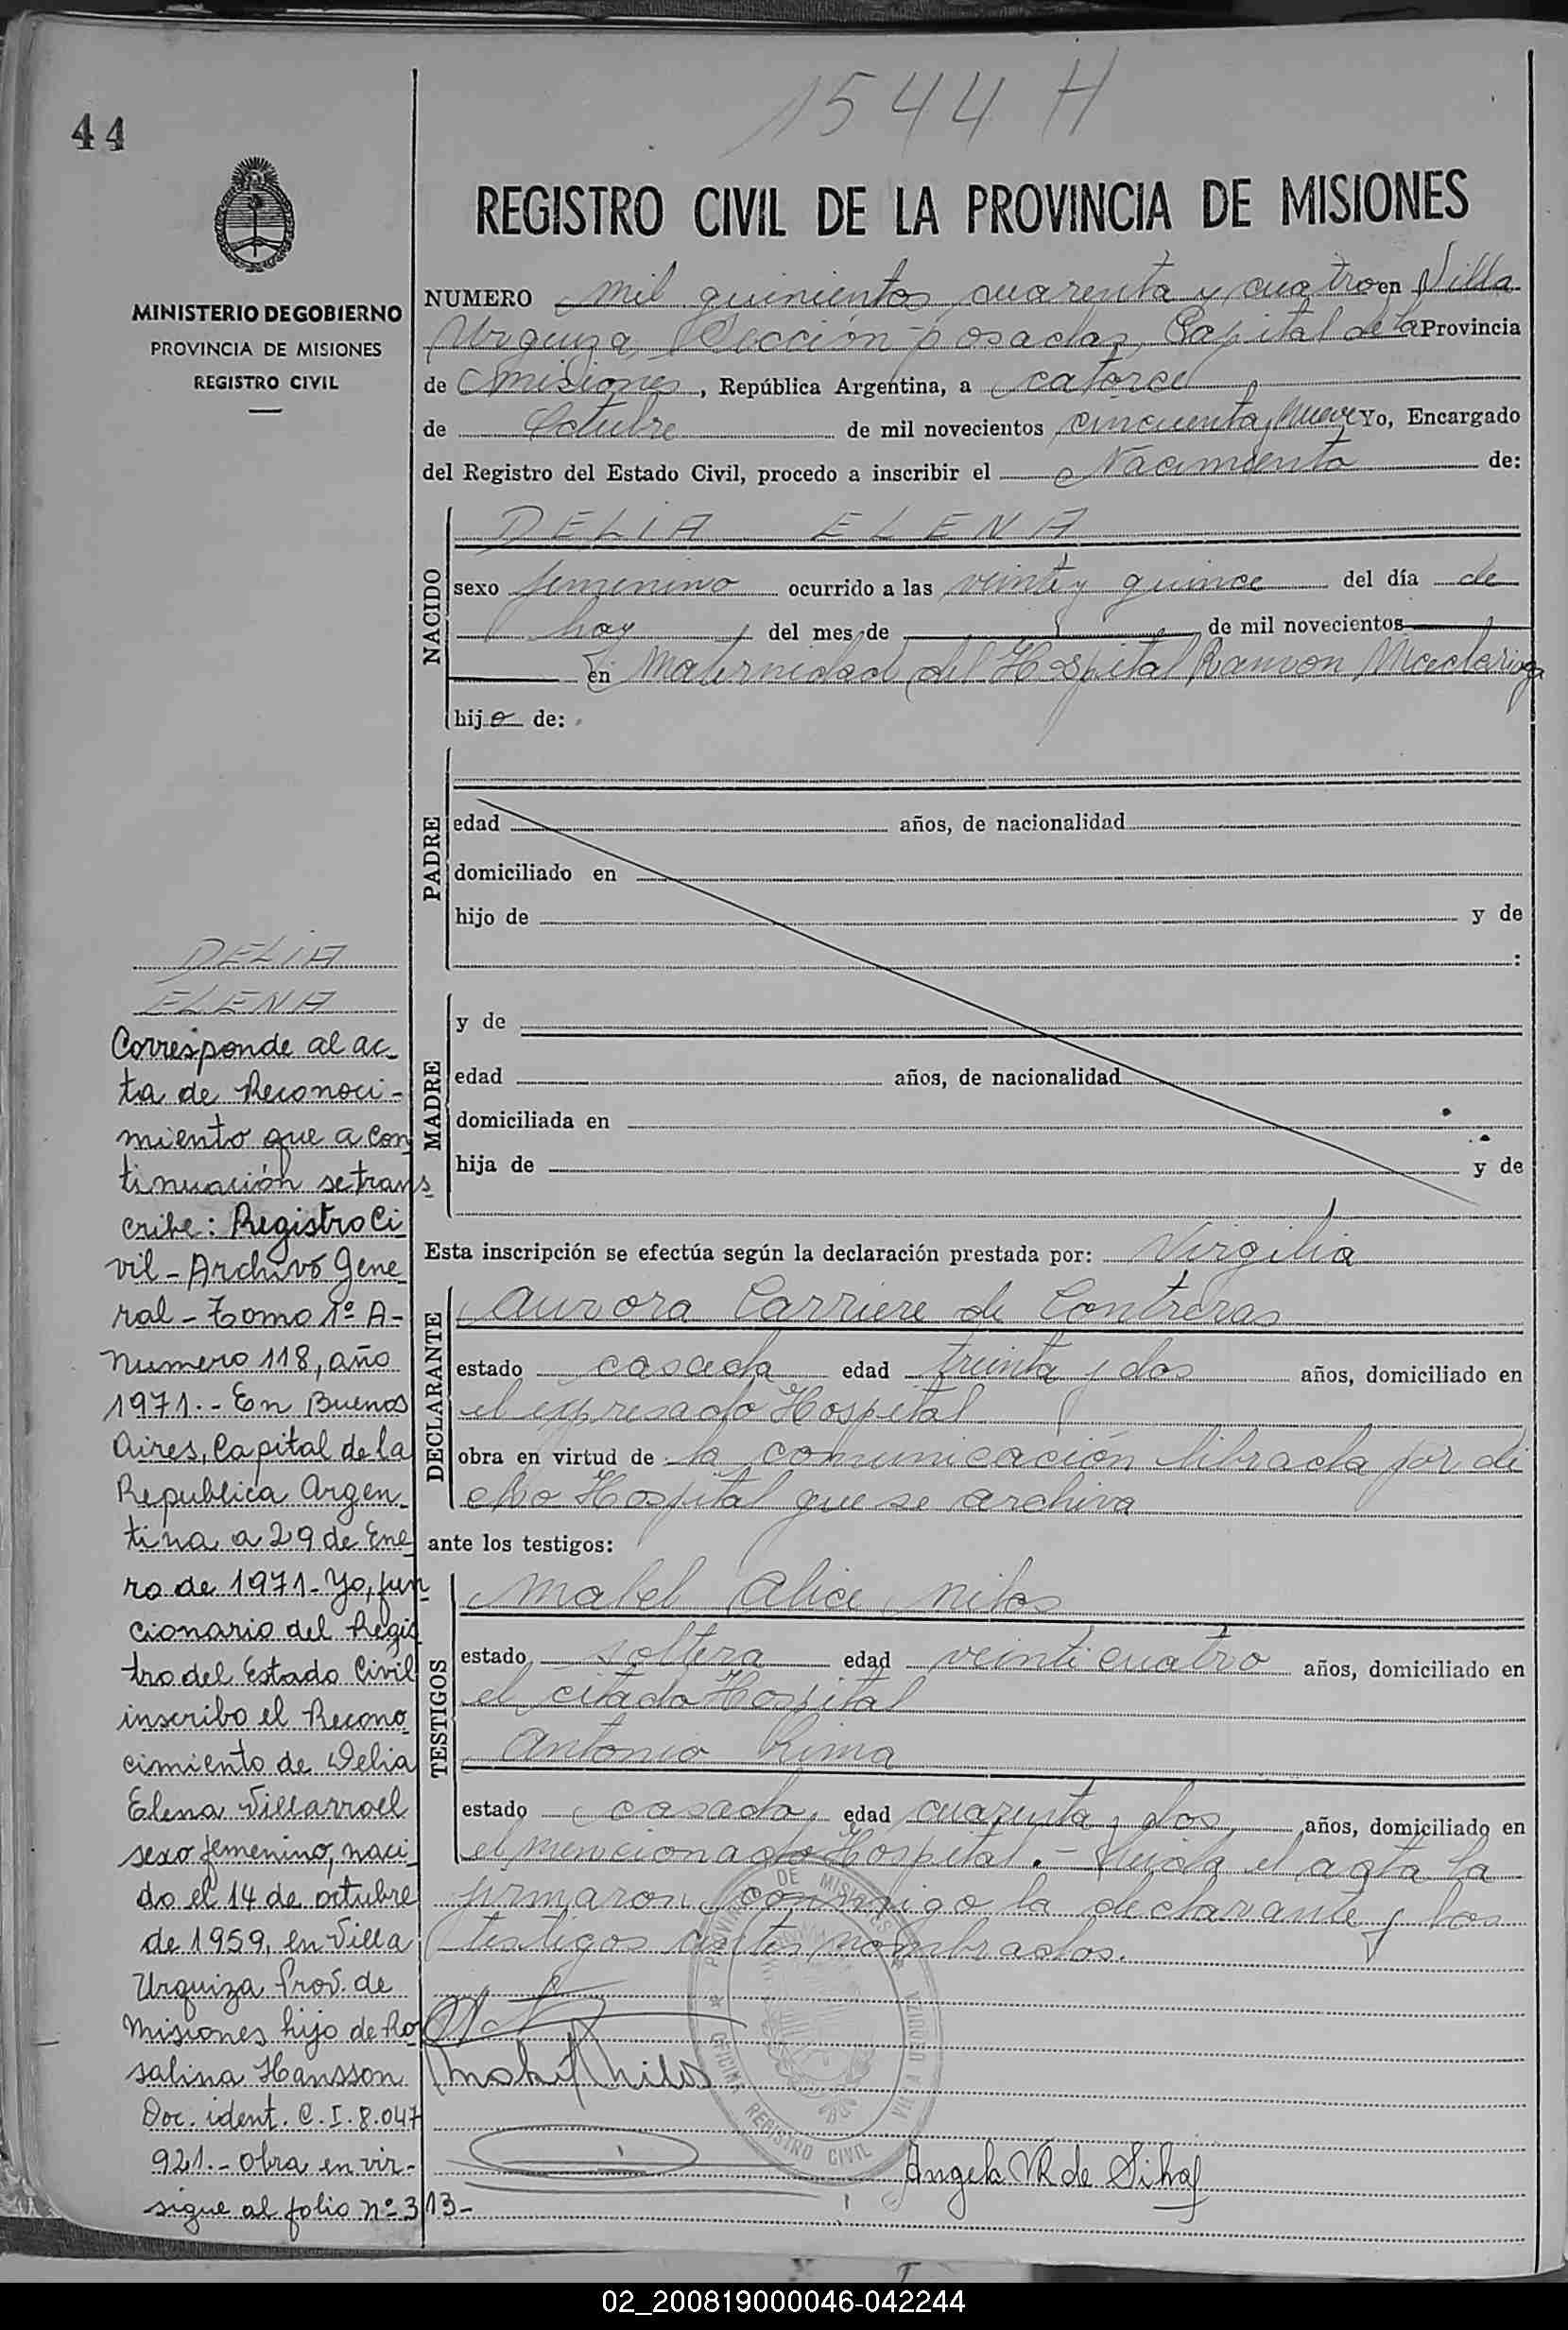 44
1544 H
MINISTERIO DE GOBIERNO
PROVINCIA DE MISIONES
REGISTRO CIVIL
REGISTRO CIVIL DE LA PROVINCIA DE MISIONES
NUMERO mil quinientos cuarenta y cuatro en Villa
Urquiza, Sección posadas, Capital de la Provincia
de misiones, República Argentina, a catorce
de Octubre de mil novecientos cincuenta y nueve Yo, Encargado
del Registro del Estado Civil, procedo a inscribir el Nacimiento de:
NACIDO
DELIA ELENA
sexo femenino ocurrido a las veinte y quince del día de
hoy del mes de de mil novecientos
en Maternidad del Hospital Ramon Madariaga
hijo de:
PADRE
edad años, de nacionalidad
domiciliado en
hijo de y de
:
MADRE
y de
edad años, de nacionalidad
domiciliada en
hija de y de
Esta inscripción se efectúa según la declaración prestada por: Virgilia
DECLARANTE
Aurora Carriere de Contreras
estado casada edad treinta y dos años, domiciliado en
el expresado Hospital
obra en virtud de la comunicación librada por di
cho Hospital que se archiva
ante los testigos:
TESTIGOS
Mabel Alice Milos
estado soltera edad veinticuatro años, domiciliado en
el citado Hospital
Antonio Rima
estado casado, edad cuarenta y dos, años, domiciliado en
el mencionado Hospital.- Leida el acta la
firmaron conmigo la declarante y los
testigos antes nombrados.
Angela VR de Silva
DELIA
ELENA
Corresponde al ac-
ta de Reconoci-
miento que a con
tinuación se trans
cribe: Registro Ci
vil - Archivo Gene
ral - Tomo 1º A-
numero 118, año
1971.- En Buenos
Aires, Capital de la
Republica Argen-
tina a 29 de Ene
ro de 1971- Yo, fun
cionario del Regis
tro del Estado Civil
inscribo el Recono
cimiento de Delia
Elena Villarroel
sexo femenino, naci
do el 14 de octubre
de 1959, en Villa
Urquiza Prov. de
Misiones hijo de Ro
salina Hansson
Doc. ident. C.I. 8.047
921.- Obra en vir-
sigue al folio nº 313-
OFICINA REGISTRO CIVIL
02_200819000046-042244